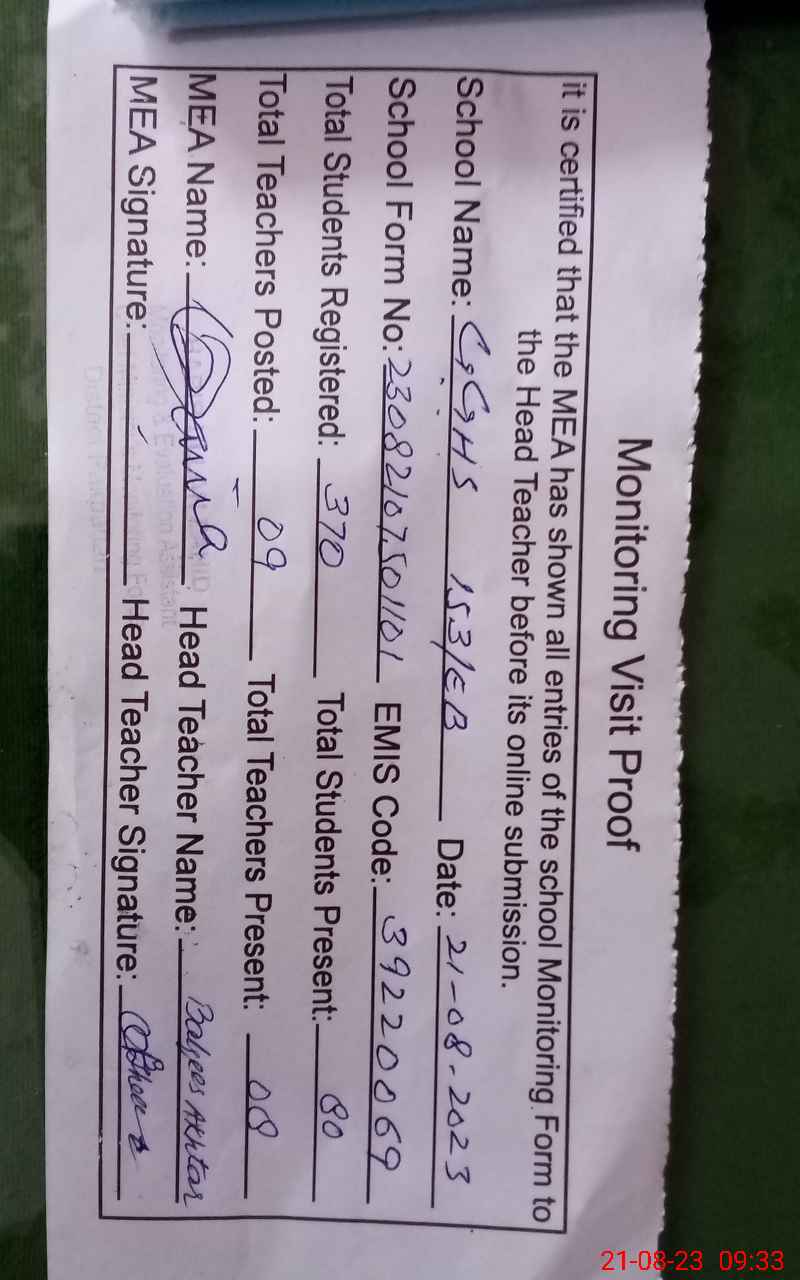 Monitoring Visit Proof
it is certified that the MEA has shown all entries of the school Monitoring Form to
the Head Teacher before its online submission.
School Name: GGHS 153/EB Date: 21-08-2023
School Form No: 23082107501101 EMIS Code: 39220069
Total Students Registered: 370 Total Students Present: 80
Total Teachers Posted: 09 Total Teachers Present: 08
MEA Name: Head Teacher Name: Balqees Akhtar
MEA Signature: Head Teacher Signature:
Monitoring & Evaluation Assistant
District Pakpattan
21-08-23 09:33